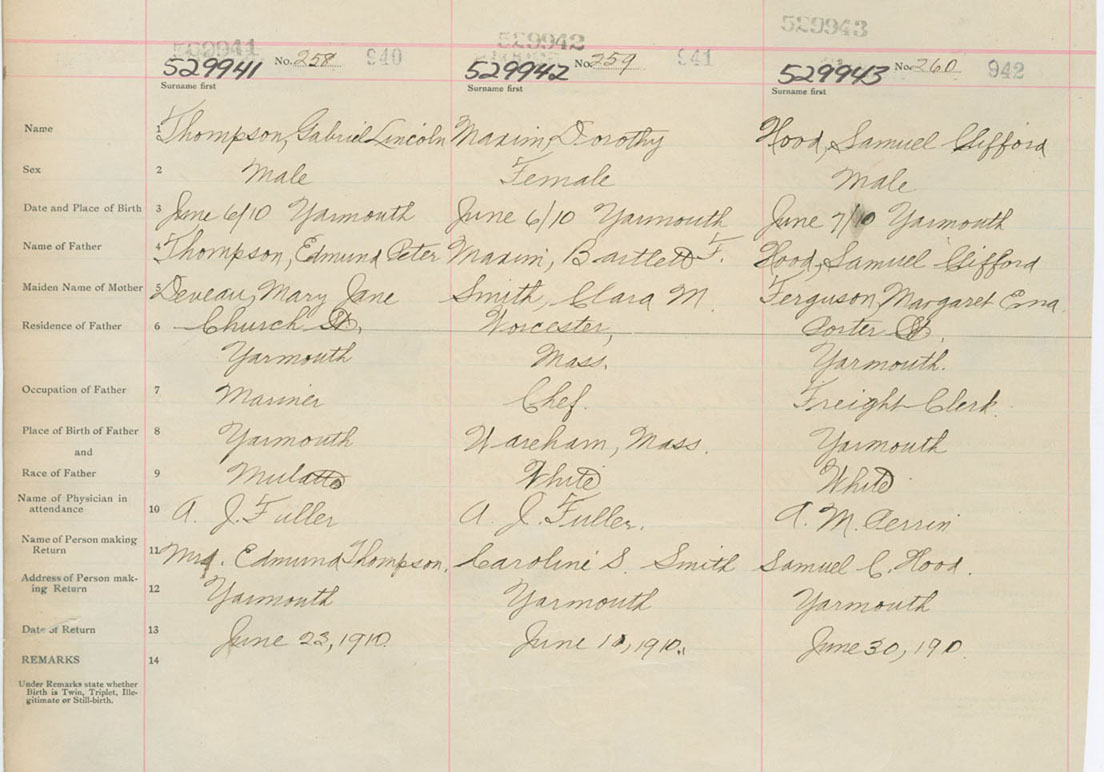 529941 529942 529943
529941 No. 258 940 529942 No. 259 941 529943 No. 260 942
Surname first Surname first Surname first
Name 1 Thompson, Gabriel Lincoln Maxim, Dorothy Hood, Samuel Clifford
Sex 2 Male Female Male
Date and Place of Birth 3 June 6/10 Yarmouth June 6/10 Yarmouth June 7/10 Yarmouth
Name of Father 4 Thompson, Edmund Peter Maxim, Bartlett F. Hood, Samuel Clifford
Maiden Name of Mother 5 Deveau, Mary Jane Smith, Clara M. Ferguson, Margaret Ena.
Residence of Father 6 Church St, Worcester, Porter St,
Yarmouth Mass. Yarmouth.
Occupation of Father 7 Mariner Chef. Freight Clerk.
Place of Birth of Father 8 Yarmouth Wareham, Mass. Yarmouth
and
Race of Father 9 Mulatto White White
Name of Physician in
attendance 10 A. J. Fuller A. J. Fuller. A. M. Perrin
Name of Person making
Return 11 Mrs. Edmund Thompson. Caroline S. Smith Samuel C. Hood.
Address of Person mak-
ing Return 12 Yarmouth Yarmouth Yarmouth
Date of Return 13 June 23, 1910. June 1910. June 30, 1910.
REMARKS 14
Under Remarks state whether
Birth is Twin, Triplet, Ille-
gitimate or Still-birth.